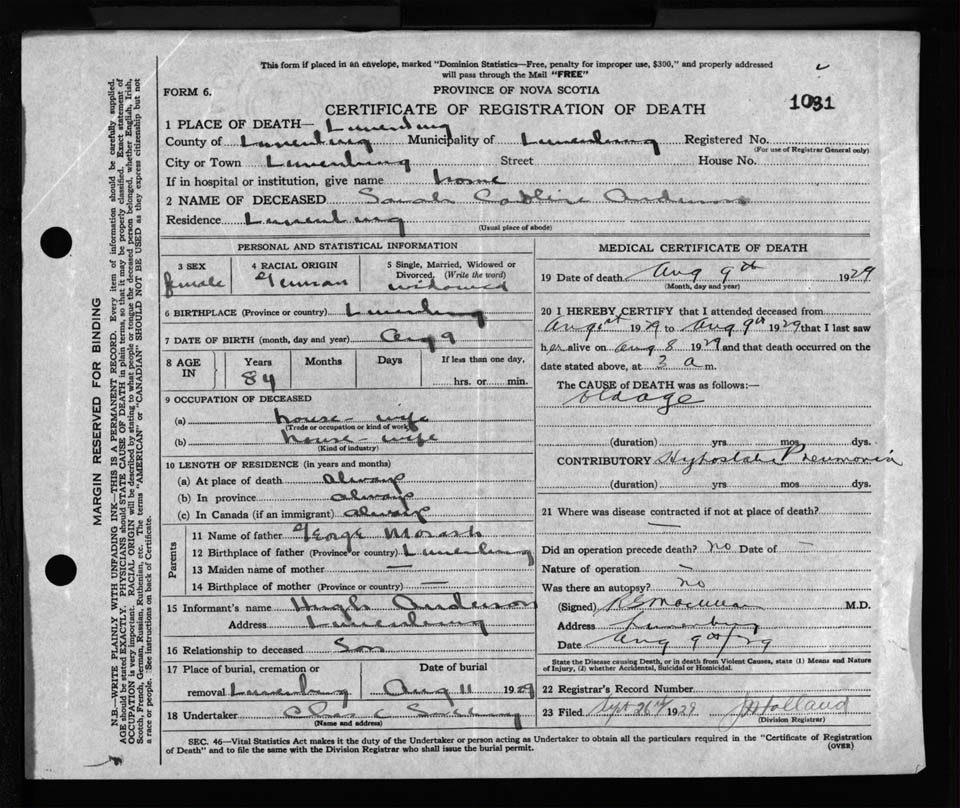 This form if placed in an envelope, marked "Dominion Statistics—Free, penalty for improper use, $300," and properly addressed
will pass through the Mail "FREE"
FORM 6.
PROVINCE OF NOVA SCOTIA
CERTIFICATE OF REGISTRATION OF DEATH
1031
1 PLACE OF DEATH— Lunenburg
County of Lunenburg Municipality of Lunenburg Registered No.
(For use of Registrar General only)
City or Town Lunenburg Street House No.
If in hospital or institution, give name home
2 NAME OF DECEASED Sarah Anderson
Residence Lunenburg
(Usual place of abode)
PERSONAL AND STATISTICAL INFORMATION
3 SEX
female
4 RACIAL ORIGIN
German
5 Single, Married, Widowed or
Divorced. (Write the word)
widowed
6 BIRTHPLACE (Province or country) Lunenburg
7 DATE OF BIRTH (month, day and year) Aug 9
8 AGE IN
Years
84
Months
Days
If less than one day,
hrs. or min.
9 OCCUPATION OF DECEASED
(a) house-wife
(Trade or occupation or kind of work)
(b) house-wife
(Kind of industry)
10 LENGTH OF RESIDENCE (in years and months)
(a) At place of death always
(b) In province always
(c) In Canada (if an immigrant) always
Parents
11 Name of father George Morash
12 Birthplace of father (Province or country) Lunenburg
13 Maiden name of mother —
14 Birthplace of mother (Province or country) —
15 Informant's name Hugh Anderson
Address Lunenburg
16 Relationship to deceased Son
17 Place of burial, cremation or
removal Lunenburg
Date of burial
Aug 11 1929
18 Undertaker Chas
(Name and address)
MEDICAL CERTIFICATE OF DEATH
19 Date of death Aug 9th 1929
(Month, day and year)
20 I HEREBY CERTIFY that I attended deceased from
Aug 1st 1929 to Aug 9th 1929 that I last saw
her alive on Aug 8 1929 and that death occurred on the
date stated above, at 3 a m.
The CAUSE of DEATH was as follows:—
old age
(duration) yrs mos dys.
CONTRIBUTORY Hypostatic Pneumonia
(duration) yrs. mos. dys.
21 Where was disease contracted if not at place of death?
—
Did an operation precede death? no Date of —
Nature of operation —
Was there an autopsy? no
(Signed) M.D.
Address Lunenburg
Date Aug 9th/29
State the Disease causing Death, or in death from Violent Causes, state (1) Means and Nature
of Injury, (2) whether Accidental, Suicidal or Homicidal.
22 Registrar's Record Number
23 Filed Sept 26th 1929 Holland
(Division Registrar)
SEC. 46—Vital Statistics Act makes it the duty of the Undertaker or person acting as Undertaker to obtain all the particulars required in the "Certificate of Registration
of Death" and to file the same with the Division Registrar who shall issue the burial permit.
(OVER)
MARGIN RESERVED FOR BINDING
N.B.—WRITE PLAINLY WITH UNFADING INK—THIS IS A PERMANENT RECORD. Every item of information should be carefully supplied.
AGE should be stated EXACTLY. PHYSICIANS should STATE CAUSE OF DEATH in plain terms, so that it may be properly classified. Exact statement of
OCCUPATION is very important. RACIAL ORIGIN will be described by stating to what people or tongue the deceased person belonged, whether English, Irish,
Scotch, French, German, Russian, Ruthenian, etc. The terms "AMERICAN" or "CANADIAN" SHOULD NOT BE USED as they express citizenship but not
a race or people. See instructions on back of Certificate.